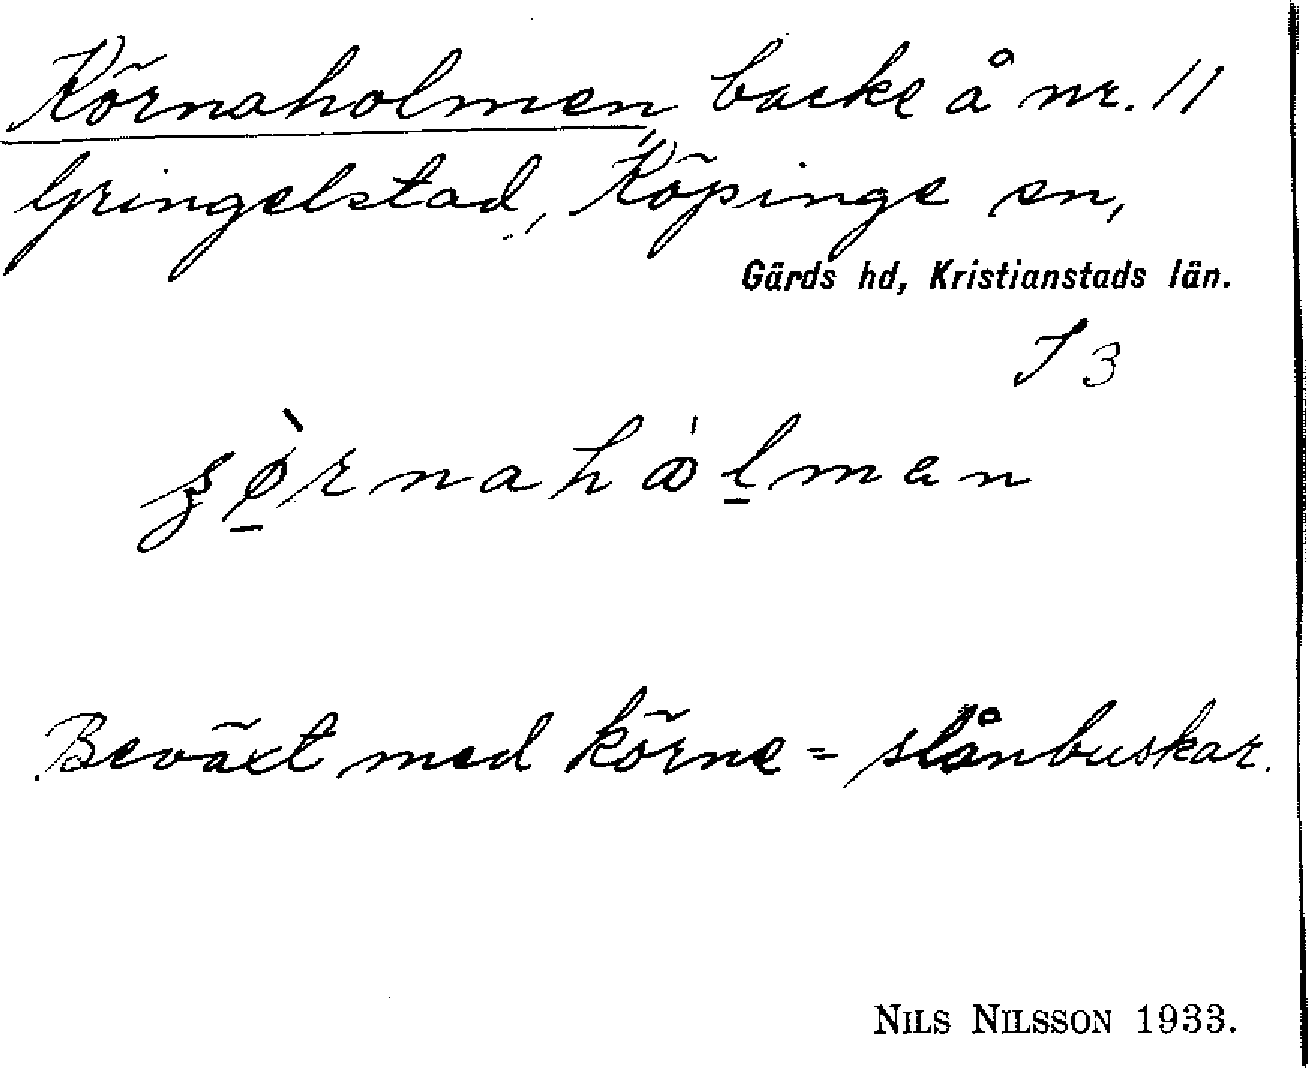 Körnaholmen, backe å nr. 11
Gringelstad, Köpinge sn,
Gärds hd, Kristianstads län.
S 3
Beväxt med körne = slånbuskar.
NILS NILSSON 1933.